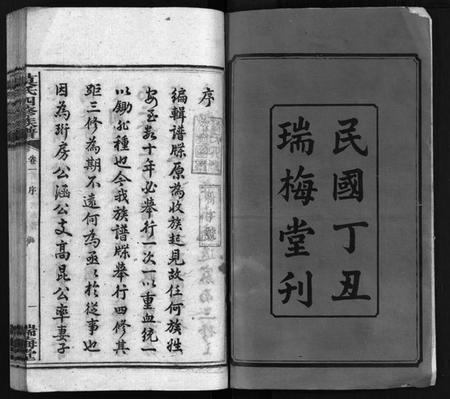 民國丁丑
瑞梅堂刊
序
編輯譜牒原為收族起見故任何族姓
每十年必舉行一次一以重血統一
以鋤非種也今我族譜牒舉行四修其
距三修為期不遠何為亟亟於從事也
因為珩房公涵公支高昆公率妻子
氏四修族譜
卷一
序
一
瑞梅堂